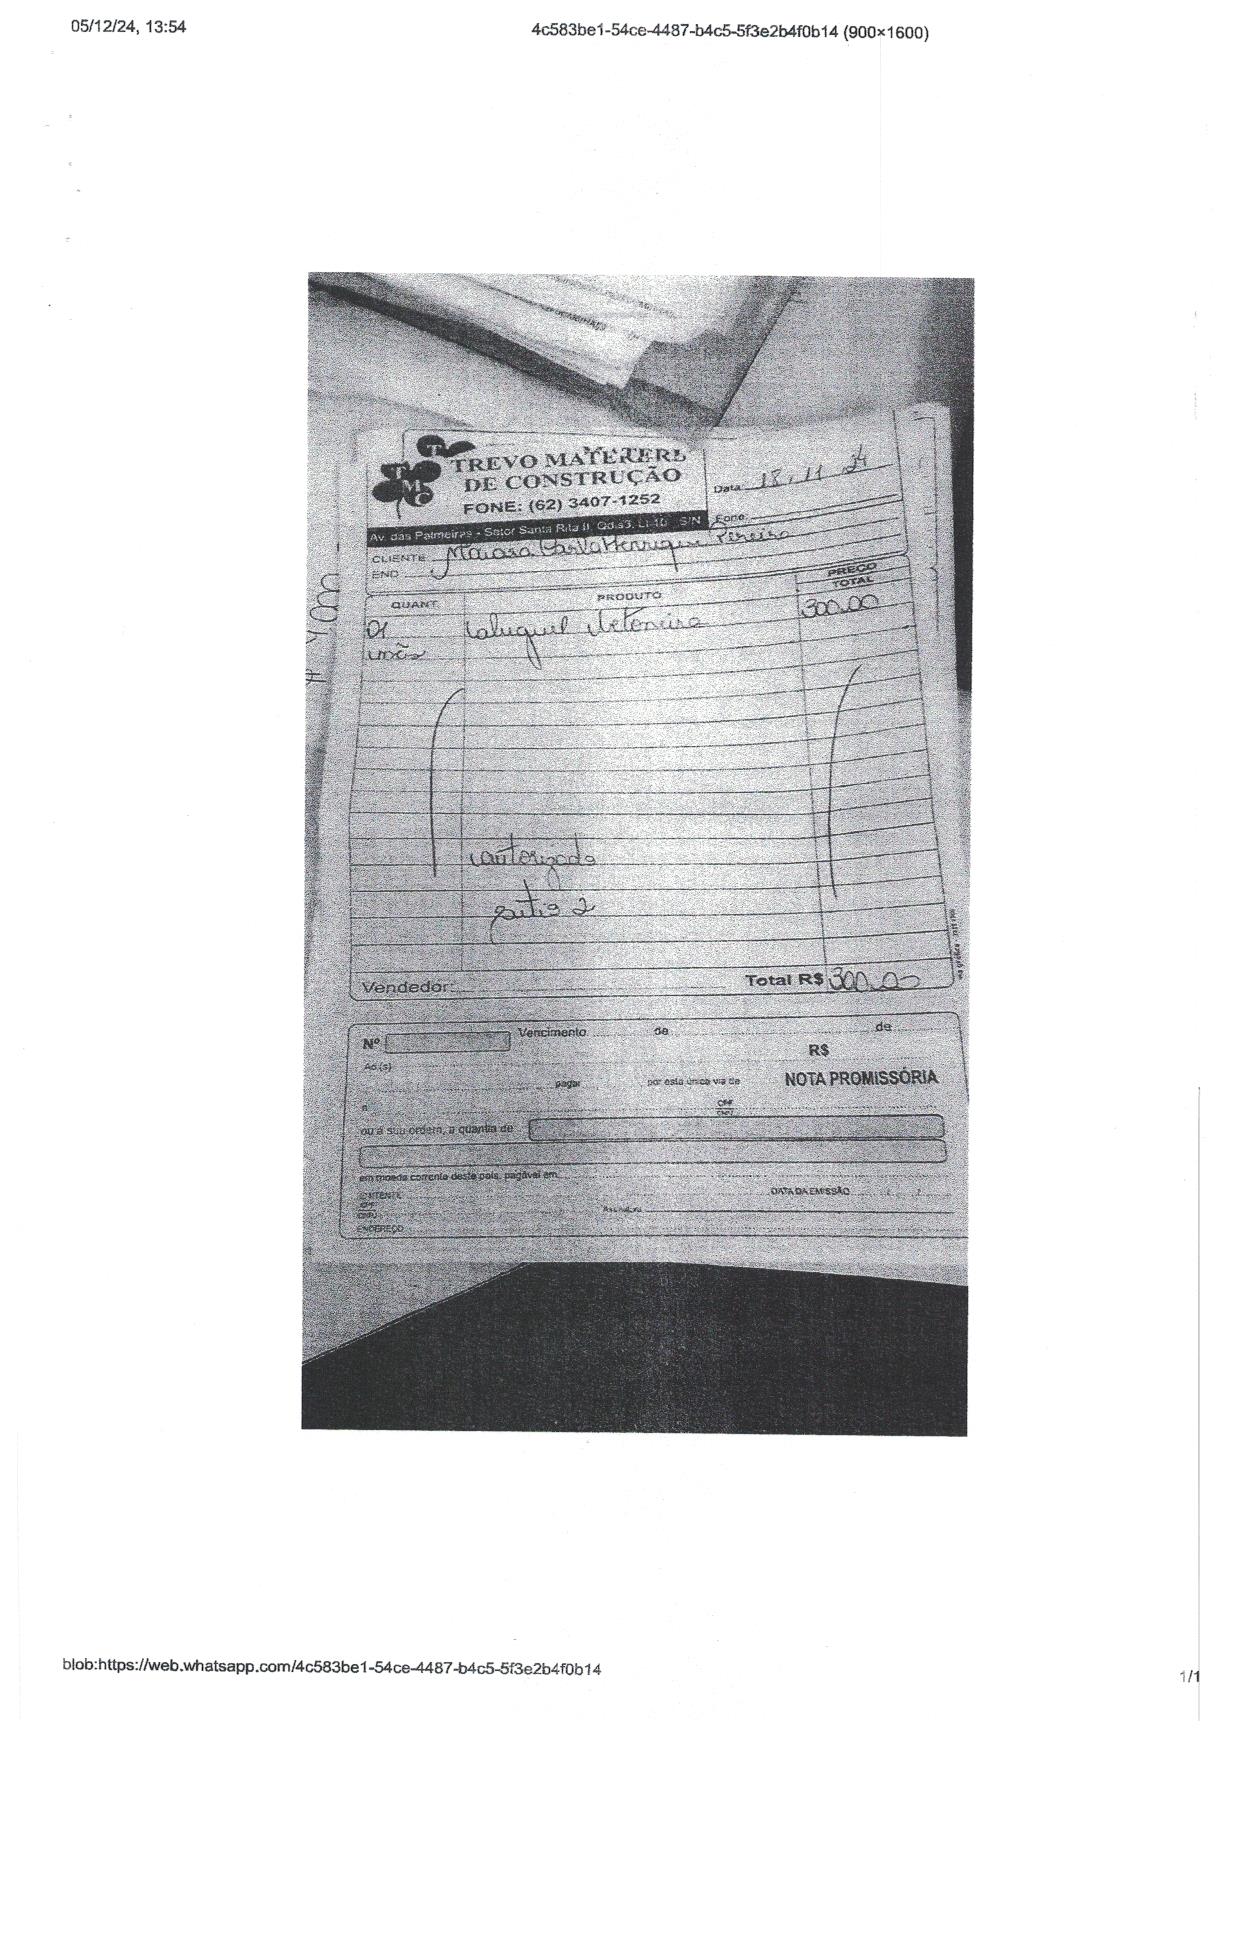 05/12/24, 13:54
4c583be1-54ce-4487-b4c5-5f3e2b4f0b14 (900×1600)
T
T M C
TREVO MATERERL
DE CONSTRUÇÃO
FONE: (62) 3407-1252
Av. das Palmeiras - Setor Santa Rita II, Qd.53, Lt.10 S/N
Data 18.11 24
Fone
CLIENTE Maiara Carla Henrique Pereira
END
QUANT. PRODUTO PREÇO TOTAL
01 aluguel betoneira 300.00
mês
autorizado
Total R$ 300.00
Vendedor:
Nº Vencimento de de
R$
Ao(s)
pagar por esta única via de NOTA PROMISSÓRIA
a CPF CNPJ
ou à sua ordem, a quantia de
em moeda corrente deste país, pagável em
EMITENTE DATA DA EMISSÃO
CPF CNPJ Assinatura
ENDEREÇO
blob:https://web.whatsapp.com/4c583be1-54ce-4487-b4c5-5f3e2b4f0b14
1/1